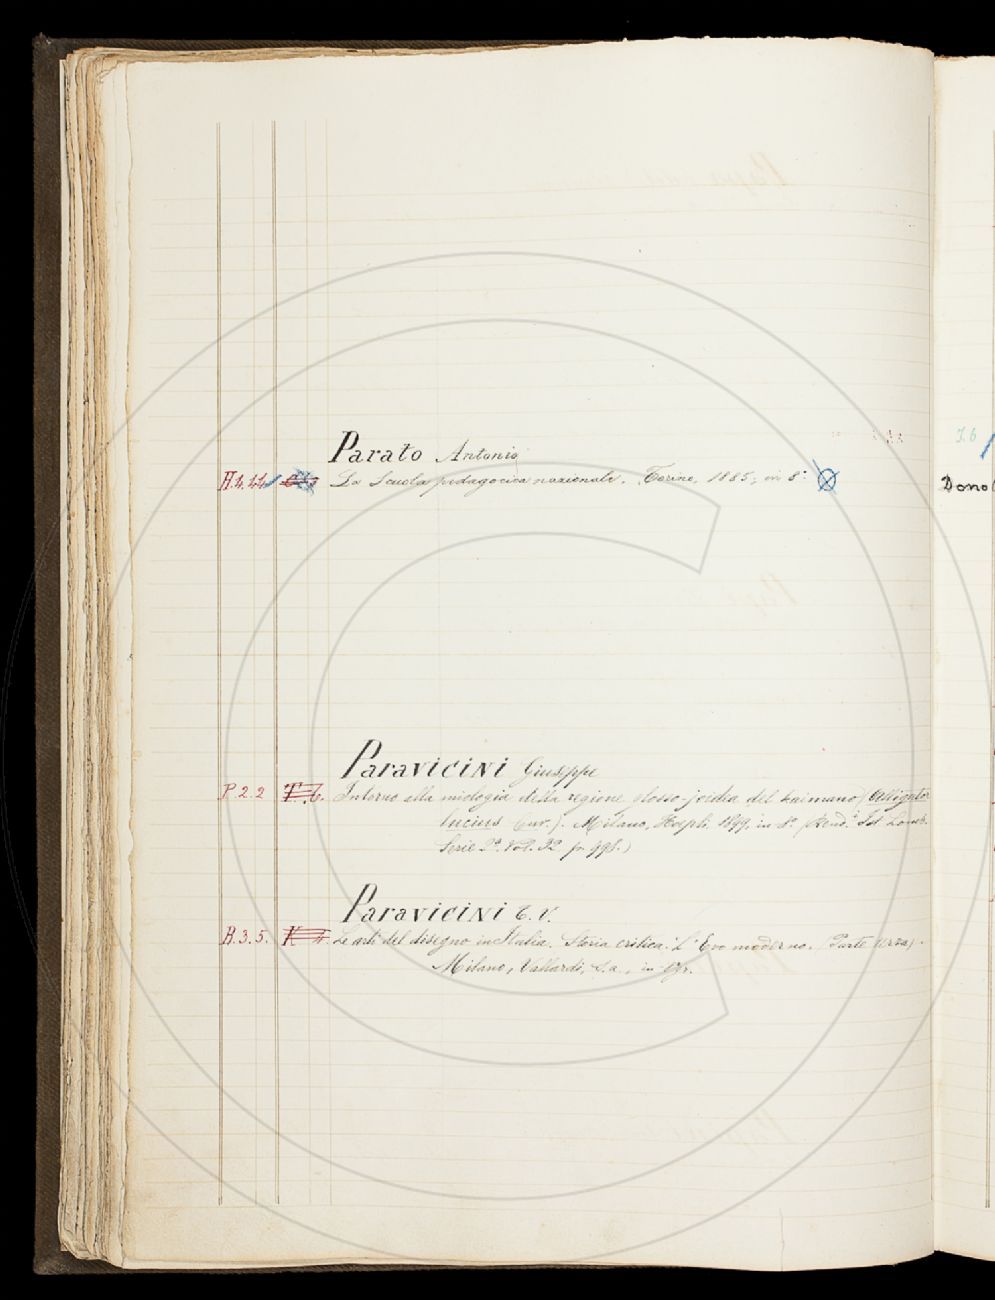 Parato Antonio
H.4.44 La Scuola pedagogica nazionale. Torino, 1885, in 8°
Paravicini Giuseppe
P.2.2 Intorno alla miologia della regione glosso-joidea del kaimano (Alligator
lucius Cuv.). Milano, Hoepli, 1899, in 8° (Rend.i Ist. Lomb.
Serie 2ª. Vol. 32 p.
Paravicini T. V.
B.3.5. Le arti del disegno in Italia. Storia critica. L'Evo moderno. (Parte terza).
Milano, Vallardi, s.a., in
J.6
Dono